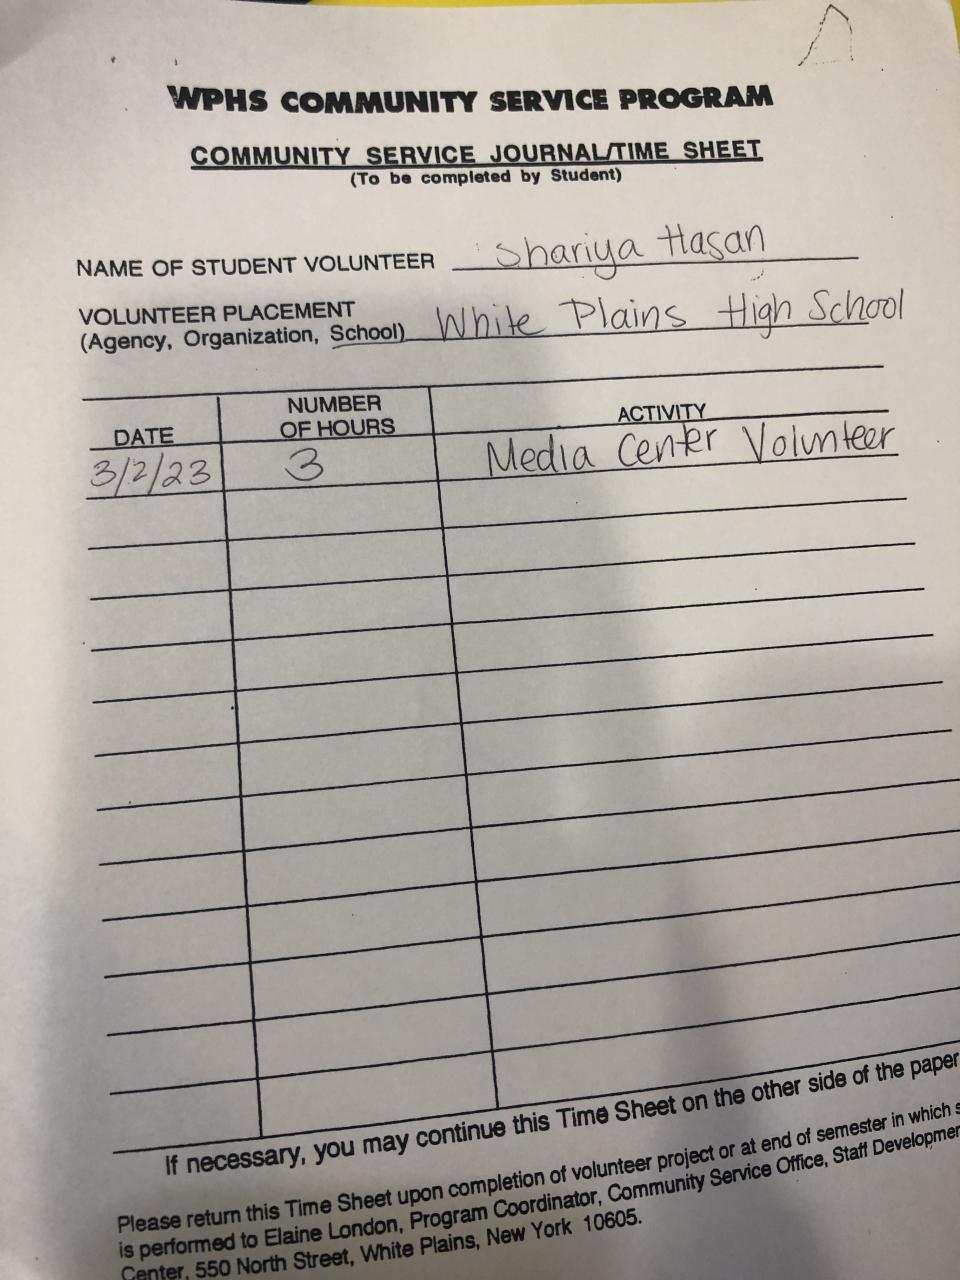 WPHS COMMUNITY SERVICE PROGRAM
COMMUNITY SERVICE JOURNAL/TIME SHEET
(To be completed by Student)
NAME OF STUDENT VOLUNTEER Shariya Hasan
VOLUNTEER PLACEMENT
(Agency, Organization, School) White Plains High School
DATE NUMBER OF HOURS ACTIVITY
3/2/23 3 Media Center Volunteer
If necessary, you may continue this Time Sheet on the other side of the paper
Please return this Time Sheet upon completion of volunteer project or at end of semester in which
is performed to Elaine London, Program Coordinator, Community Service Office, Staff
Center, 550 North Street, White Plains, New York 10605.